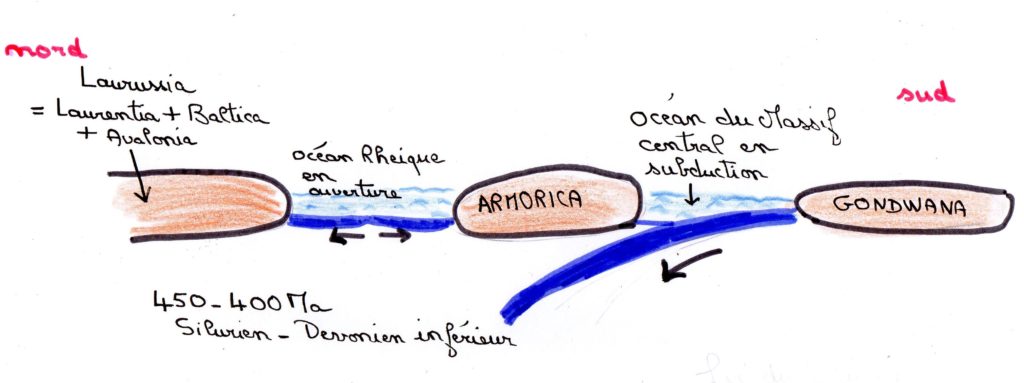 nord
Laurussia
= Laurentia + Baltica
+ Avalonia
sud
océan Rheique
en
ouverture
océan du Massif
central en
subduction
ARMORICA
GONDWANA
450-400 Ma
Silurien - Devonien inférieur